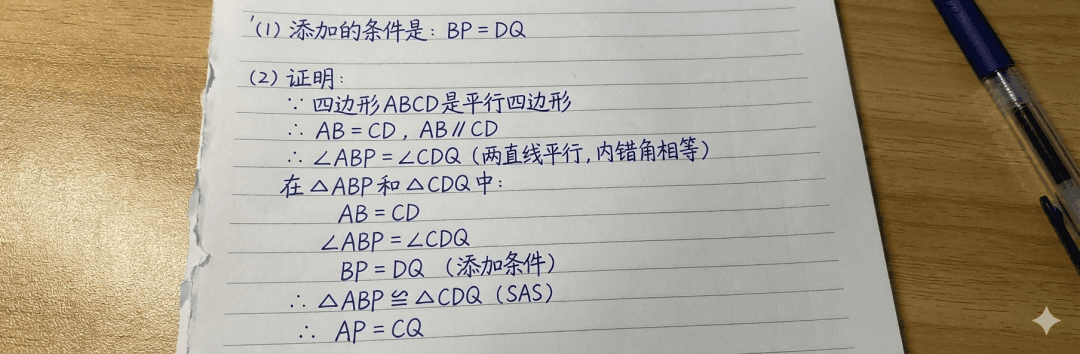 (1) 添加的条件是: BP = DQ
(2) 证明:
∵ 四边形ABCD是平行四边形
∴ AB = CD , AB∥CD
∴ ∠ABP = ∠CDQ (两直线平行,内错角相等)
在△ABP和△CDQ中:
AB = CD
∠ABP = ∠CDQ
BP = DQ (添加条件)
∴ △ABP ≌ △CDQ (SAS)
∴ AP = CQ